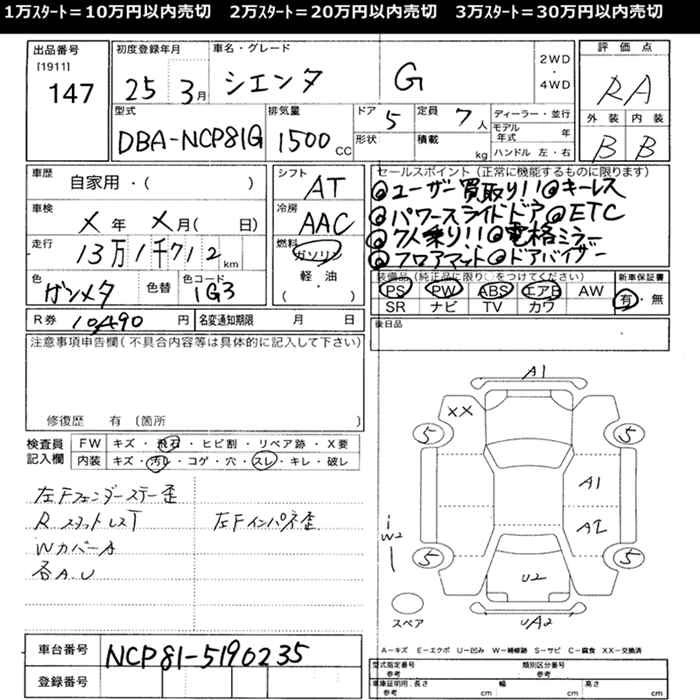 1万スタート＝10万円以内売切　2万スタート＝20万円以内売切　3万スタート＝30万円以内売切
出品番号
[1911]
147
初度登録年月
25 3月
車名・グレード
シエンタ G
2WD
・
4WD
評価点
RA
外装 内装
B B
型式
DBA-NCP81G
排気量
1500 CC
ドア 5
形状
定員 7人
積載 kg
ディーラー・並行
モデル年式 年
ハンドル 左・右
車歴
自家用・( )
車検
X年 X月( 日)
走行
13万1千712 km
色
ガンメタ
色替
色コード
1G3
シフト
AT
冷房
AAC
燃料
ガソリン
軽・油
( )
セールスポイント (正常に機能するものに限ります)
◎ユーザー買取り!!◎キーレス
◎パワースライドドア◎ETC
◎7人乗り!!◎電格ミラー
◎フロアマット◎ドアバイザー
装備品 (純正品に限り○をつけてください)
PS PW ABS エアB AW
SR ナビ TV カワ
新車保証書
有・無
R券 10,490 円
名変通知期限 月 日
後日品
注意事項申告欄 (不具合内容等は具体的に記入して下さい)
修復歴 有 (箇所
検査員
記入欄
FW キズ・飛石・ヒビ割・リペア跡・X要
内装 キズ・汚レ・コゲ・穴・スレ・キレ・破レ
左Fフェンダーステー歪
R スタットレスT
左Fインパネ歪
Wカバーキ
各A.U
A1
XX
5
5
A1
A2
i
W2
5
5
U2
UA2
スペア
A－キズ E－エクボ U－凹み W－補修跡 S－サビ C－腐食 XX－交換済
車台番号
NCP81-5190235
登録番号
型式指定番号
参考
類別区分番号
参考
車庫証明用．長さ
参考 cm
幅
cm
高さ
cm